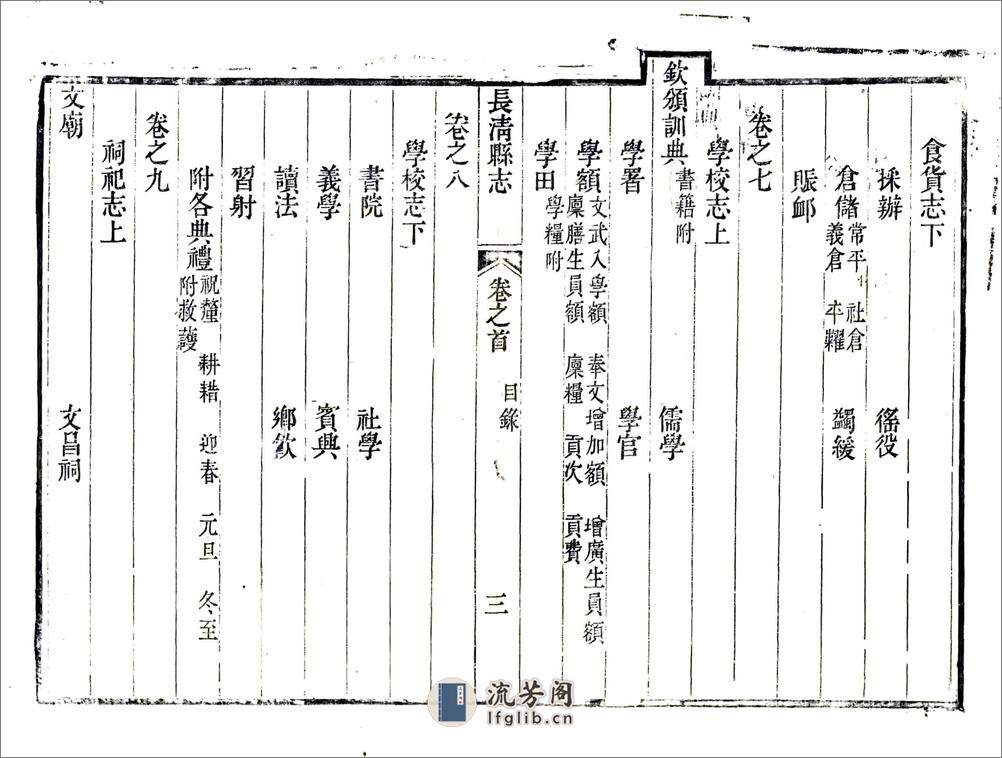 食貨志下
採辦 徭役
倉儲 常平 社倉 義倉 平糶 蠲緩
賑卹
卷之七
學校志上
欽頒訓典 書籍附 儒學
學署 學官
學額 文武入學額 奉文增加額 增廣生員額 廩膳生員額 廩糧 貢次 貢費
學田 學糧附
長清縣志 卷之首 目錄 三
卷之八
學校志下
書院 社學
義學 賓興
讀法 鄉飲
習射
附各典禮 祝釐 耕耤 迎春 元旦 冬至 附救護
卷之九
祠祀志上
文廟 文昌祠
流芳阁
lfglib.cn